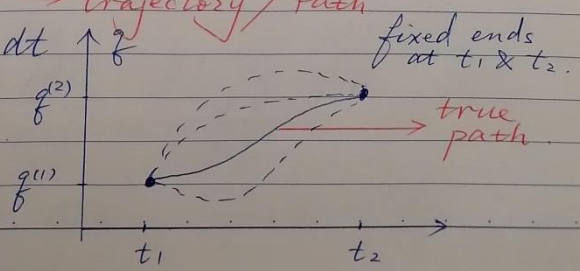 trajectory / path
dt q fixed ends
at t₁ & t₂.
q⁽²⁾
true
path.
q⁽¹⁾
t₁ t₂